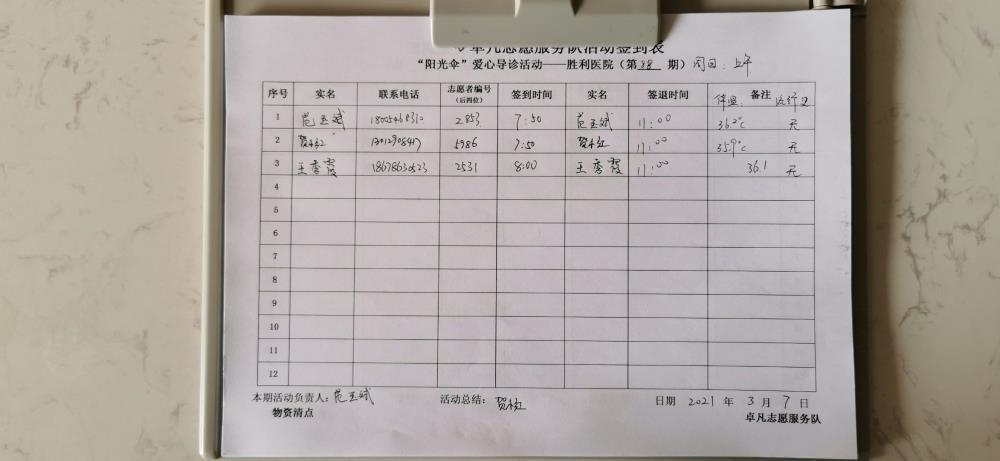 卓凡志愿服务队活动签到表
“阳光伞”爱心导诊活动——胜利医院（第 38 期）周日：上午
序号 实名 联系电话 志愿者编号（后四位） 签到时间 实名 签退时间 体温 备注
1 范玉斌 2853 7:50 范玉斌 11:00 36.2°C 无
2 5986 7:50 11:00 35.9°C 无
3 王秀霞 18678630523 2531 8:00 王秀霞 11:00 36.1 无
4
5
6
7
8
9
10
11
12
本期活动负责人：范玉斌 活动总结： 日期 2021 年 3 月 7 日
物资清点 卓凡志愿服务队